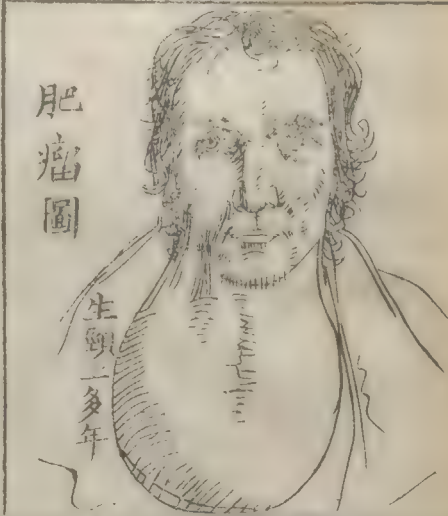 肥瘤圖
生頸上多年